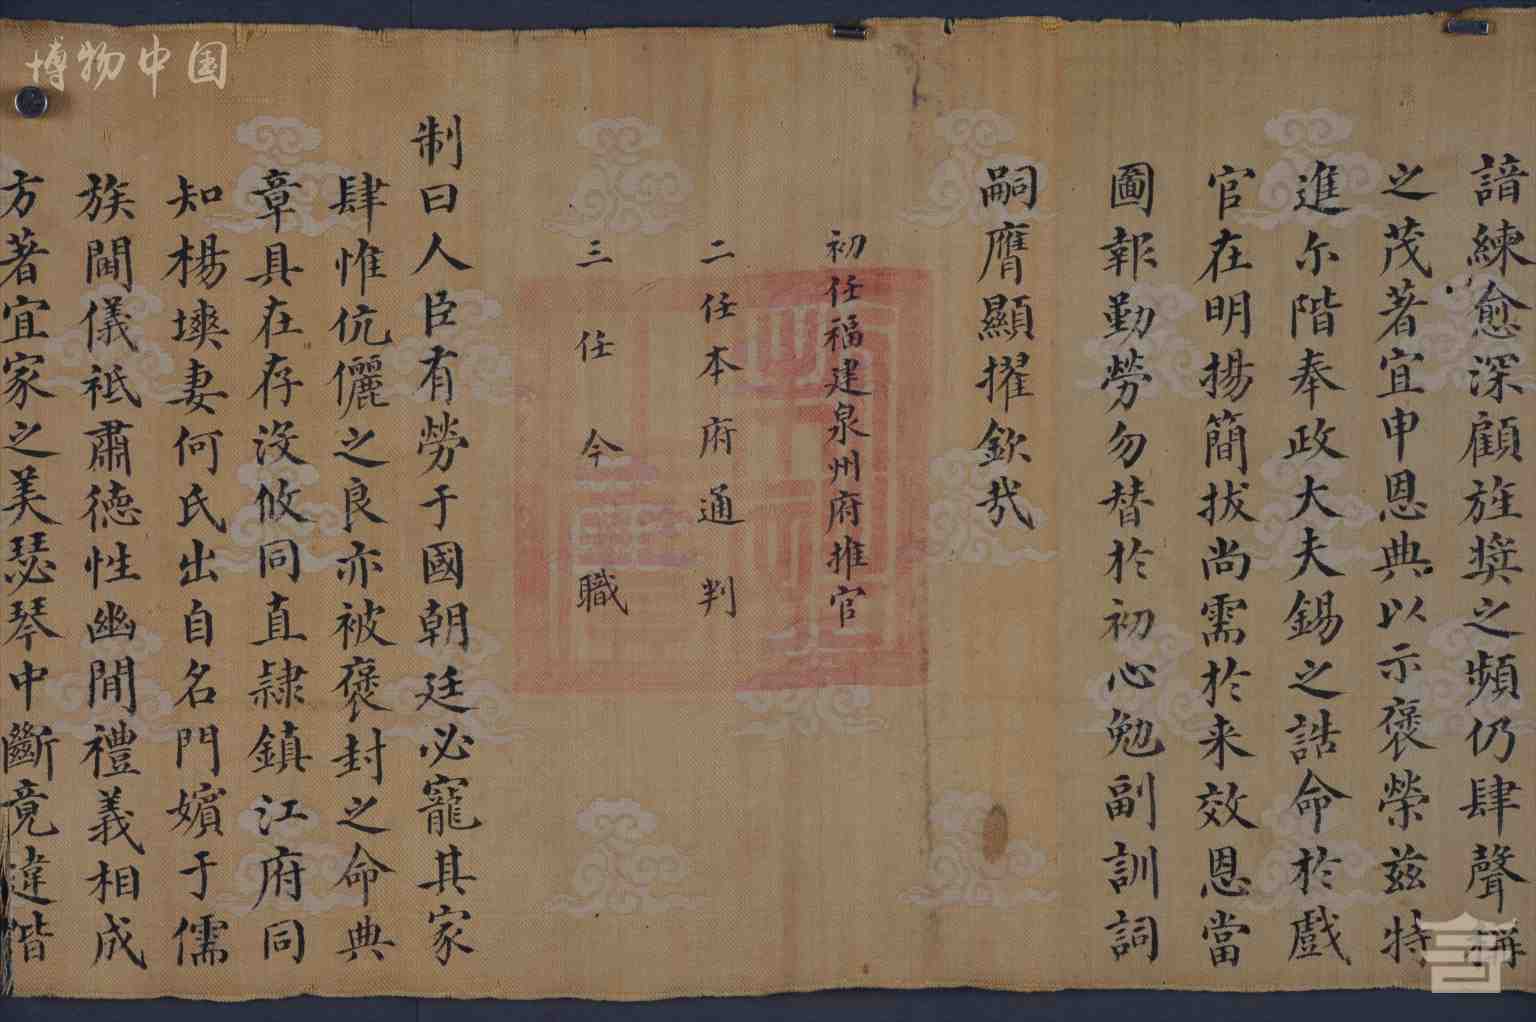 諳練愈深顧旌奬之頻仍肆聲稱
之茂著宜申恩典以示褒榮兹特
進尔階奉政大夫錫之誥命於戲
官在明揚簡拔尚需於来效恩當
圖報勤勞勿替於初心勉副訓詞
嗣膺顯擢欽哉
初任福建泉州府推官
二任本府通判
三任今職
制曰人臣有勞于國朝廷必寵其家
肆惟伉儷之良亦被褒封之命典
章具在存没攸同直隷鎮江府同
知楊爽妻何氏出自名門嬪于儒
族閫儀祇肅德性幽閒禮義相成
方著宜家之美瑟琴中斷竟違偕
博物中国